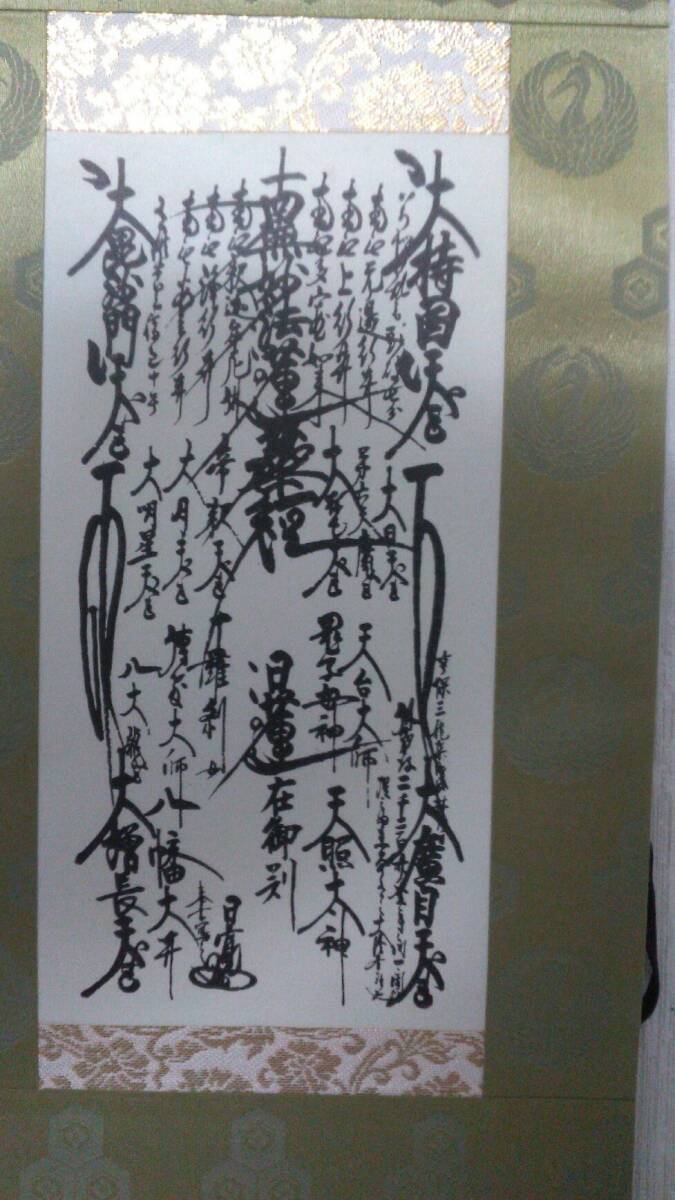 大持国天王
南無無辺行菩薩
南無上行菩薩
南無多宝如来
南無妙法蓮華経
南無釈迦牟尼仏
南無浄行菩薩
南無安立行菩薩
大毘沙門天王
大日天王
第六天魔王
大梵天王
帝釈天王
大月天王
大明星天王
天台大師
鬼子母神
十羅刹女
伝教大師
八大龍王
大廣目天王
天照太神
日蓮在御判
八幡大菩薩
大増長天王
日寛